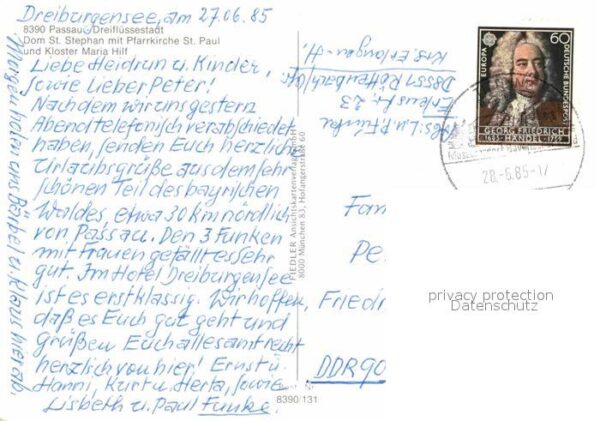 Dreiburgensee, am 27.06.85
8390 Passau, Dreiflüssestadt
Dom St. Stephan mit Pfarrkirche St. Paul
und Kloster Maria Hilf
Liebe Heidrun u. Kinder,
sowie Lieber Peter!
Nachdem wir uns gestern
Abend telefonisch verabschiedet
haben, senden Euch herzliche
Urlaubsgrüße aus dem sehr
schönen Teil des bayrischen
Waldes, etwa 30 km nördlich
von Passau. Den 3 Funken
mit Frauen gefällt es sehr
gut. Im Hotel Dreiburgensee
ist es erstklassig. Wir hoffen,
daß es Euch gut geht und
grüßen Euch allesamt recht
herzlich von hier! Ernst u.
Hanni, Kurt u. Herta, sowie
Lisbeth u. Paul Funke.
Morgen holen uns Bärbel u. Klaus hier ab.
FIEDLER Ansichtskartenverlag
8000 München 83, Hofangerstraße 60
8390/131
Abs. L. u. P. Funke
23
D8551 Röttenbach
Krs. Erlangen-H.
EUROPA
60
DEUTSCHE BUNDESPOST
GEORG FRIEDRICH
HÄNDEL
1685
1759
28.-6.85-17
Fam
Pe
Friedr
DDR90
privacy protection
Datenschutz